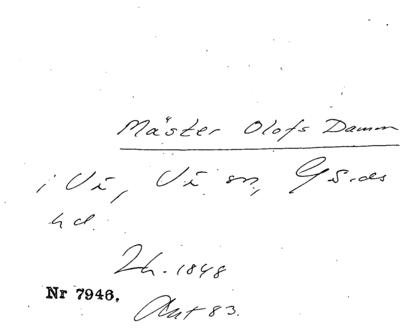 Mäster Olofs Damm
i Vi, Vi sn,
hd.
Lh. 1848
Nr 7946.
Ant 83.